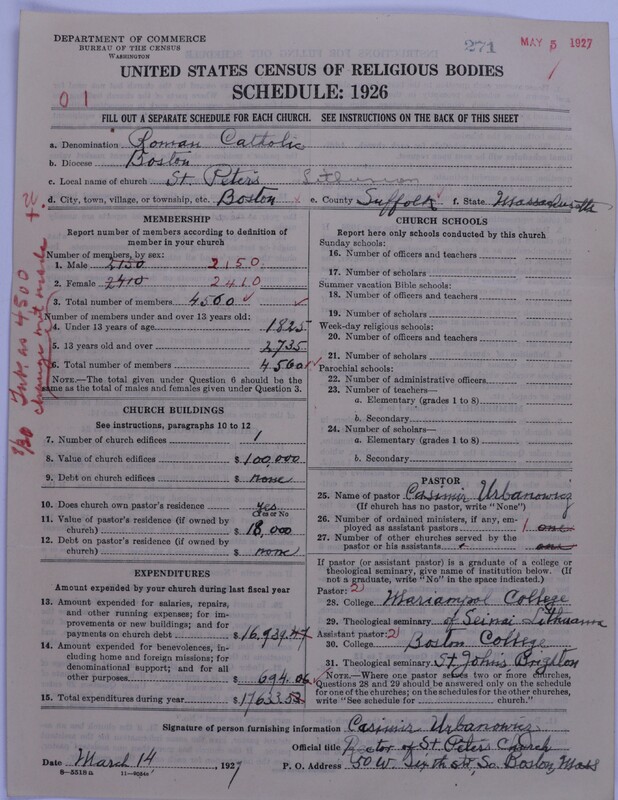 DEPARTMENT OF COMMERCE
BUREAU OF THE CENSUS
WASHINGTON
271
MAY 5 1927
UNITED STATES CENSUS OF RELIGIOUS BODIES
SCHEDULE: 1926
01
FILL OUT A SEPARATE SCHEDULE FOR EACH CHURCH. SEE INSTRUCTIONS ON THE BACK OF THIS SHEET
a. Denomination Roman Catholic
b. Diocese Boston
c. Local name of church St. Peter's
d. City, town, village, or township, etc. Boston e. County Suffolk f. State Massachusetts
MEMBERSHIP
Report number of members according to definition of
member in your church
Number of members, by sex:
1. Male 2150 2150
2. Female 2410 2410
3. Total number of members 4560
Number of members under and over 13 years old:
4. Under 13 years of age 1825
5. 13 years old and over 2735
6. Total number of members 4560
NOTE.—The total given under Question 6 should be the
same as the total of males and females given under Question 3.
CHURCH BUILDINGS
See instructions, paragraphs 10 to 12
7. Number of church edifices 1
8. Value of church edifices $ 100,000
9. Debt on church edifices $ none
10. Does church own pastor's residence yes
Yes or No
11. Value of pastor's residence (if owned by
church) $ 18,000
12. Debt on pastor's residence (if owned by
church) $ none
EXPENDITURES
Amount expended by your church during last fiscal year
13. Amount expended for salaries, repairs,
and other running expenses; for im-
provements or new buildings; and for
payments on church debt $ 16,939.47
14. Amount expended for benevolences,
including home and foreign missions; for
denominational support; and for all
other purposes $ 694.06
15. Total expenditures during year $ 17633.53
CHURCH SCHOOLS
Report here only schools conducted by this church
Sunday schools:
16. Number of officers and teachers
17. Number of scholars
Summer vacation Bible schools:
18. Number of officers and teachers
19. Number of scholars
Week-day religious schools:
20. Number of officers and teachers
21. Number of scholars
Parochial schools:
22. Number of administrative officers
23. Number of teachers—
a. Elementary (grades 1 to 8)
b. Secondary
24. Number of scholars—
a. Elementary (grades 1 to 8)
b. Secondary
PASTOR
25. Name of pastor Casimir Urbanowicz
(If church has no pastor, write "None")
26. Number of ordained ministers, if any, em-
ployed as assistant pastors 1 one
27. Number of other churches served by the
pastor or his assistants one
If pastor (or assistant pastor) is a graduate of a college or
theological seminary, give name of institution below. (If
not a graduate, write "No" in the space indicated.)
Pastor: 2
28. College Mariampol College
29. Theological seminary of Seinai Lithuania
Assistant pastor: 2
30. College Boston College
31. Theological seminary St. Johns Brighton
NOTE.—Where one pastor serves two or more churches,
Questions 28 and 29 should be answered only on the schedule
for one of the churches; on the schedules for the other churches,
write "See schedule for church."
Signature of person furnishing information Casimir Urbanowicz
Official title Rector of St. Peters Church
Date March 14, 1927 P. O. Address 50 W. Sixth St, So. Boston, Mass
8-5518a